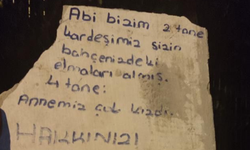 Abi bizim 2 tane
kardeşimiz sizin
bahçenizdeki
elmaları almış.
4 tane.
Annemiz çok kızdı.
HAKKINIZI